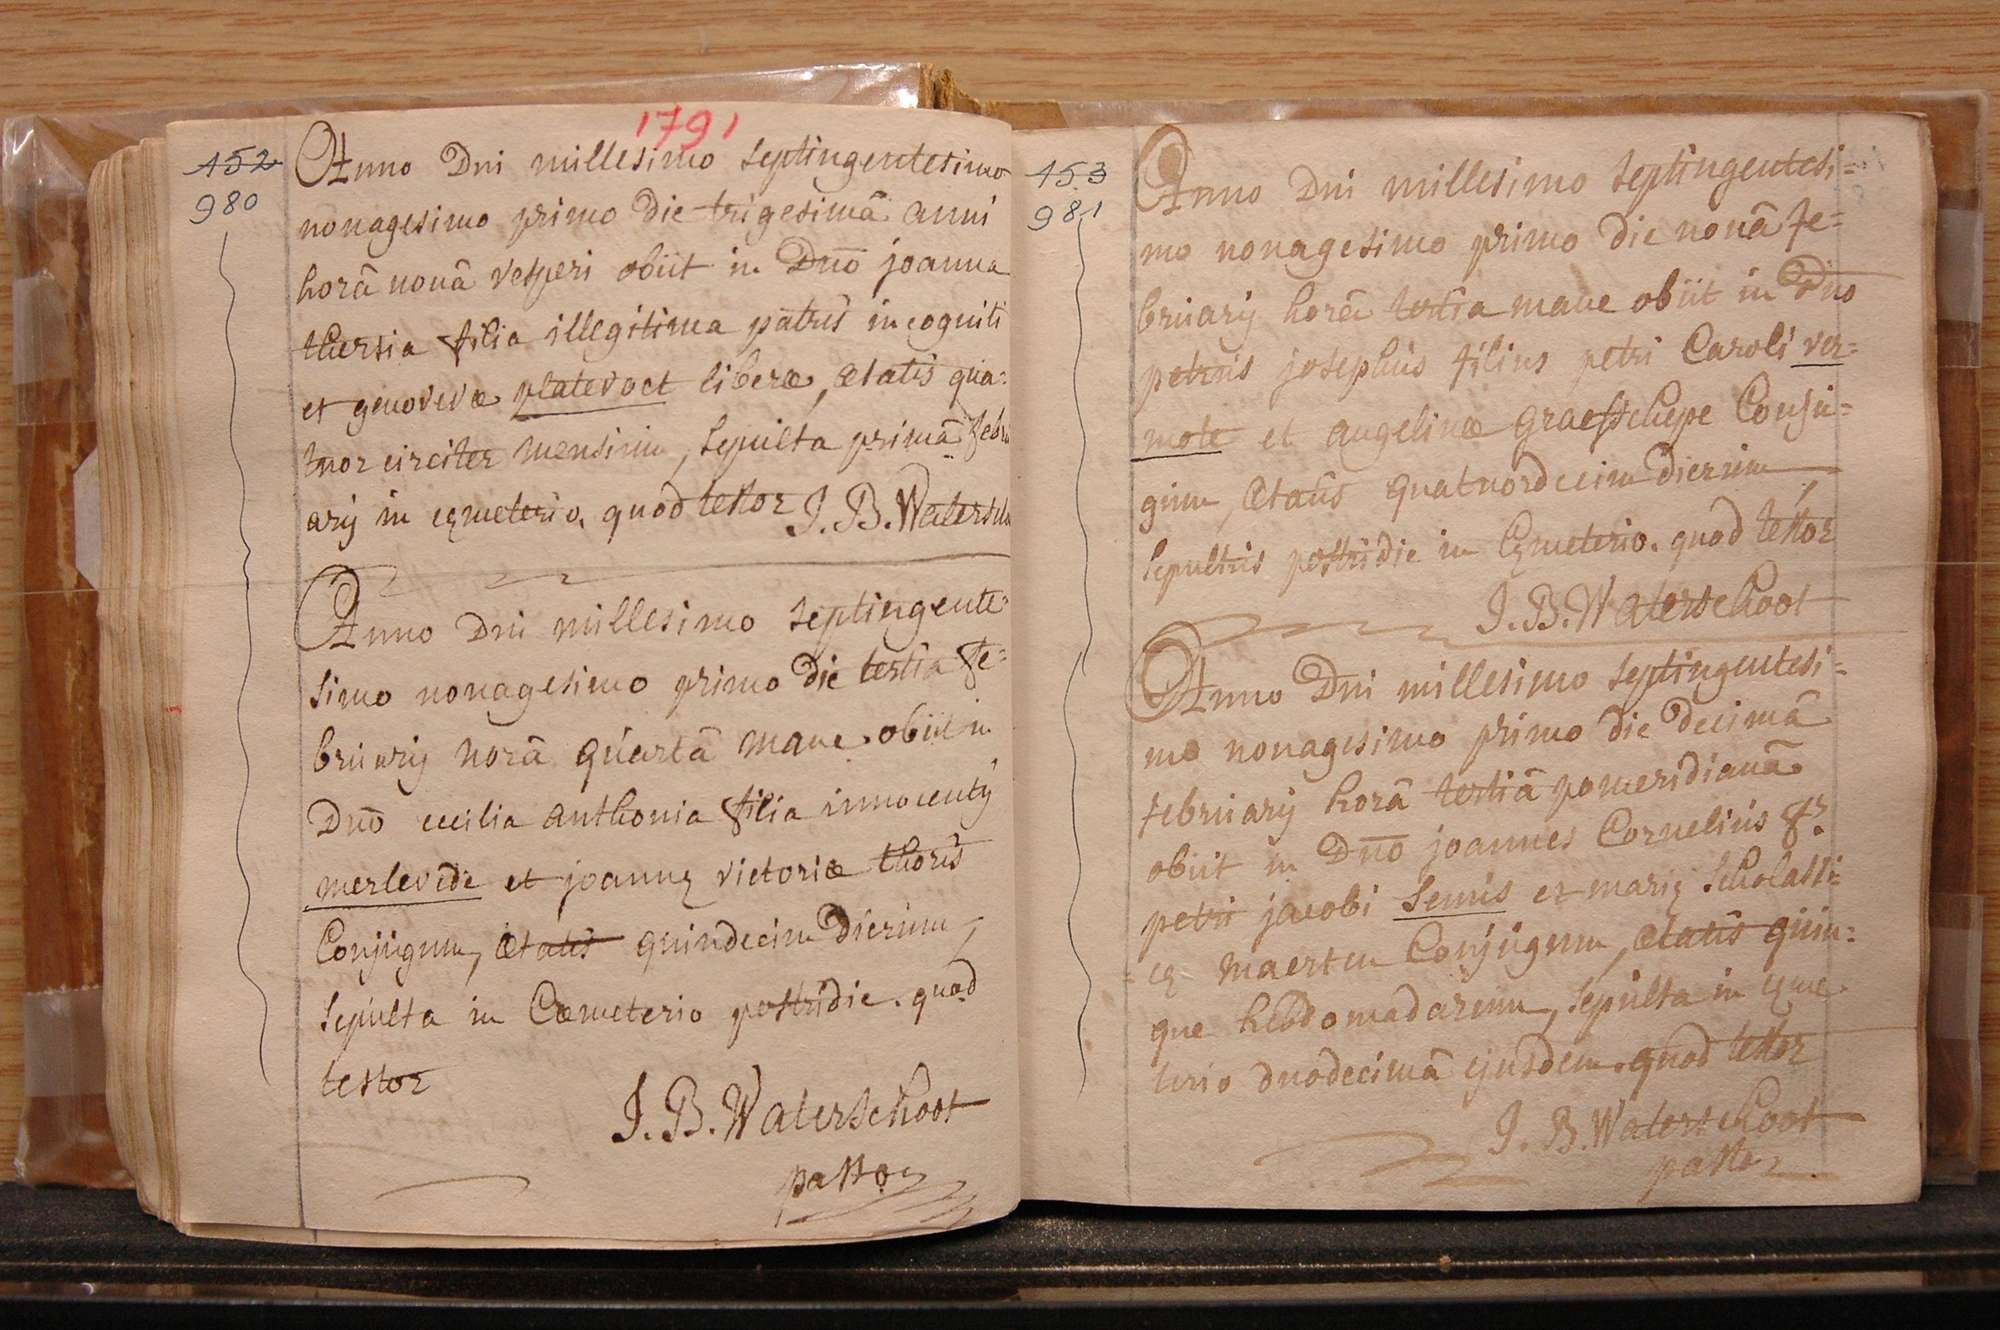 1791
452
980
Anno Dni millesimo septingentesimo
nonagesimo primo die trigesimâ anni
horâ nonâ vesperi obiit in Dno joanna
thersia filia illegitima patris incogniti
et genovevæ platevoet liberæ, ætatis qua=
tuor circiter mensium, sepulta primâ febru
arij in cymeterio. quod testor J. B. Waterscho
Anno Dni millesimo septingente=
simo nonagesimo primo die tertia fe=
bruarij horâ quartâ mane obiit in
Dno cecilia anthonia filia innocentij
merlevede et joannę victoriæ thoris
Conjugum, ætatis quindecim dierum,
sepulta in Cœmeterio postridie. quod
testor
J. B. Waterschoot
pastor
453
981
Anno Dni millesimo septingentesi=
mo nonagesimo primo die nonâ fe=
bruarij horâ tertia mane obiit in Dno
petrus josephus filius petri Caroli ver=
mote et angelinæ Graefschepe Conju=
gum, ætatis quatuordecim dierum,
sepultus postridie in Cymeterio. quod testor
J. B. Waterschoot
Anno Dni millesimo septingentesi=
mo nonagesimo primo die decimâ
februarij horâ tertiâ pomeridianâ
obiit in Dno joannes Cornelius fs.
petri jacobi Senus et marię scholasti=
cę maerten Conjugum, ætatis quin=
que hebdomadarum, sepulta in cyme
terio duodecimâ ejusdem. quod testor
J. B. Waterschoot
pastor